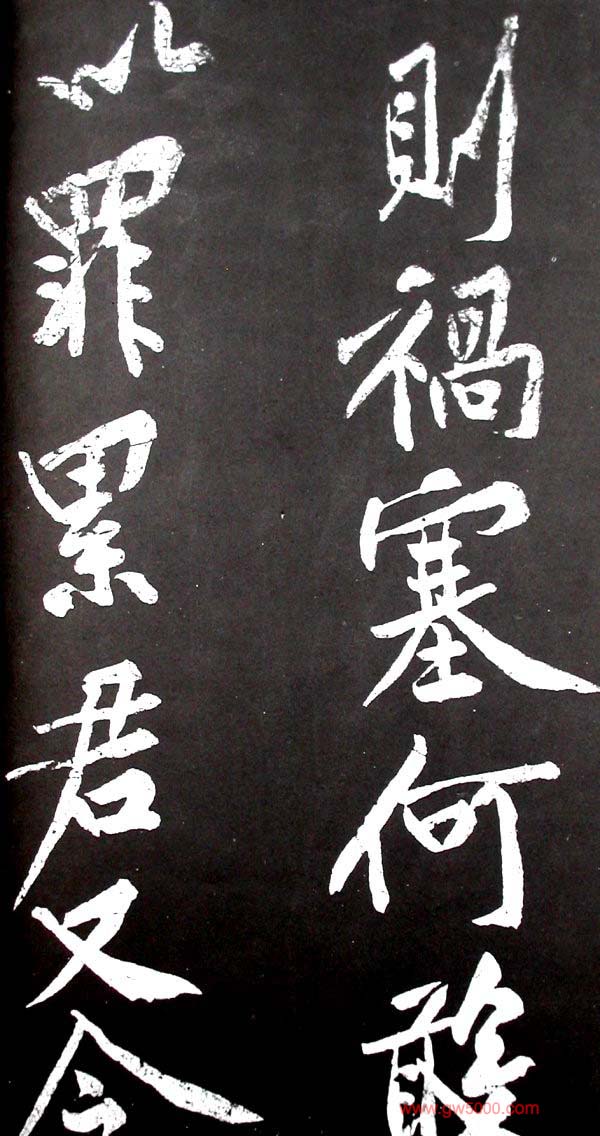 則禍塞何
以罪累君又今
www.gw5000.com